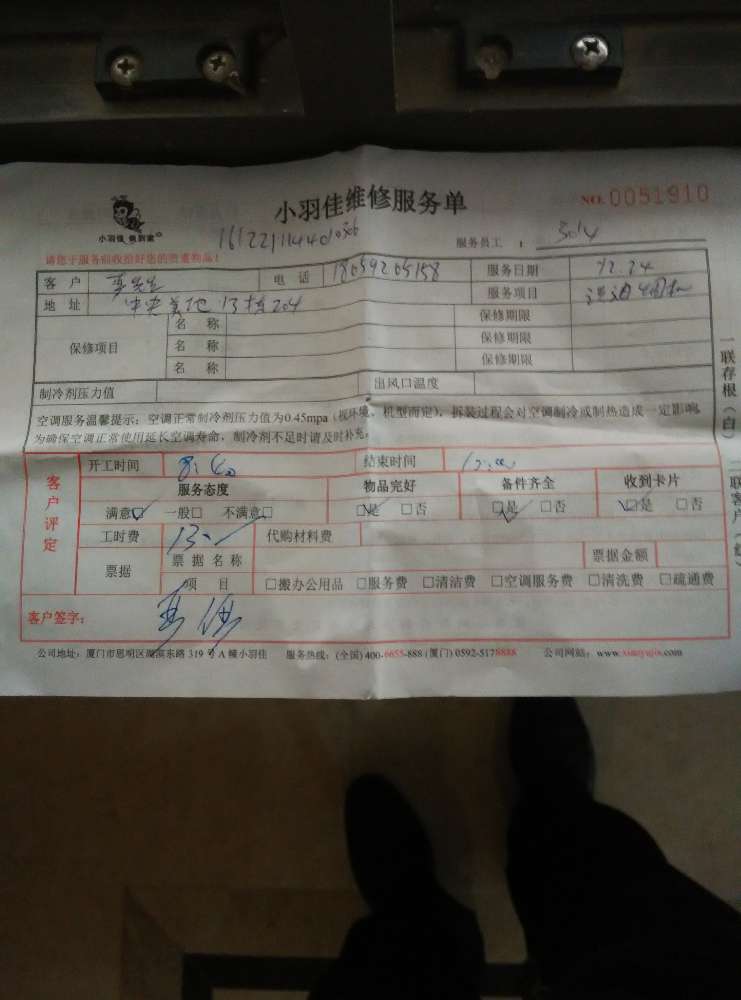 小羽佳维修服务单
NO. 0051910
小羽佳 俵到家
服务员工:
请您于服务前收拾好您的贵重物品!
客户 李先生 电话 18059205158 服务日期 12.24
地址 13栋204 服务项目
保修项目 名称 保修期限
名称 保修期限
名称 保修期限
制冷剂压力值 出风口温度
空调服务温馨提示:空调正常制冷剂压力值为0.45mpa(视环境、机型而定),拆装过程会对空调制冷或制热造成一定影响,
为确保空调正常使用延长空调寿命,制冷剂不足时请及时补充。
一联存根(白)
客户评定
开工时间 8:40 结束时间 12:00
服务态度 物品完好 备件齐全 收到卡片
满意□ 一般□ 不满意□ □是 □否 □是 □否 □是 □否
工时费 代购材料费
票据 票据名称 票据金额
项目 □搬办公用品 □服务费 □清洁费 □空调服务费 □清洗费 □疏通费
客户签字:
公司地址:厦门市思明区 东路 319 号 A 幢小羽佳 服务热线:(全国) 400-6655-888 (厦门) 0592-5178888 公司网站:www.xiaoyujia.com